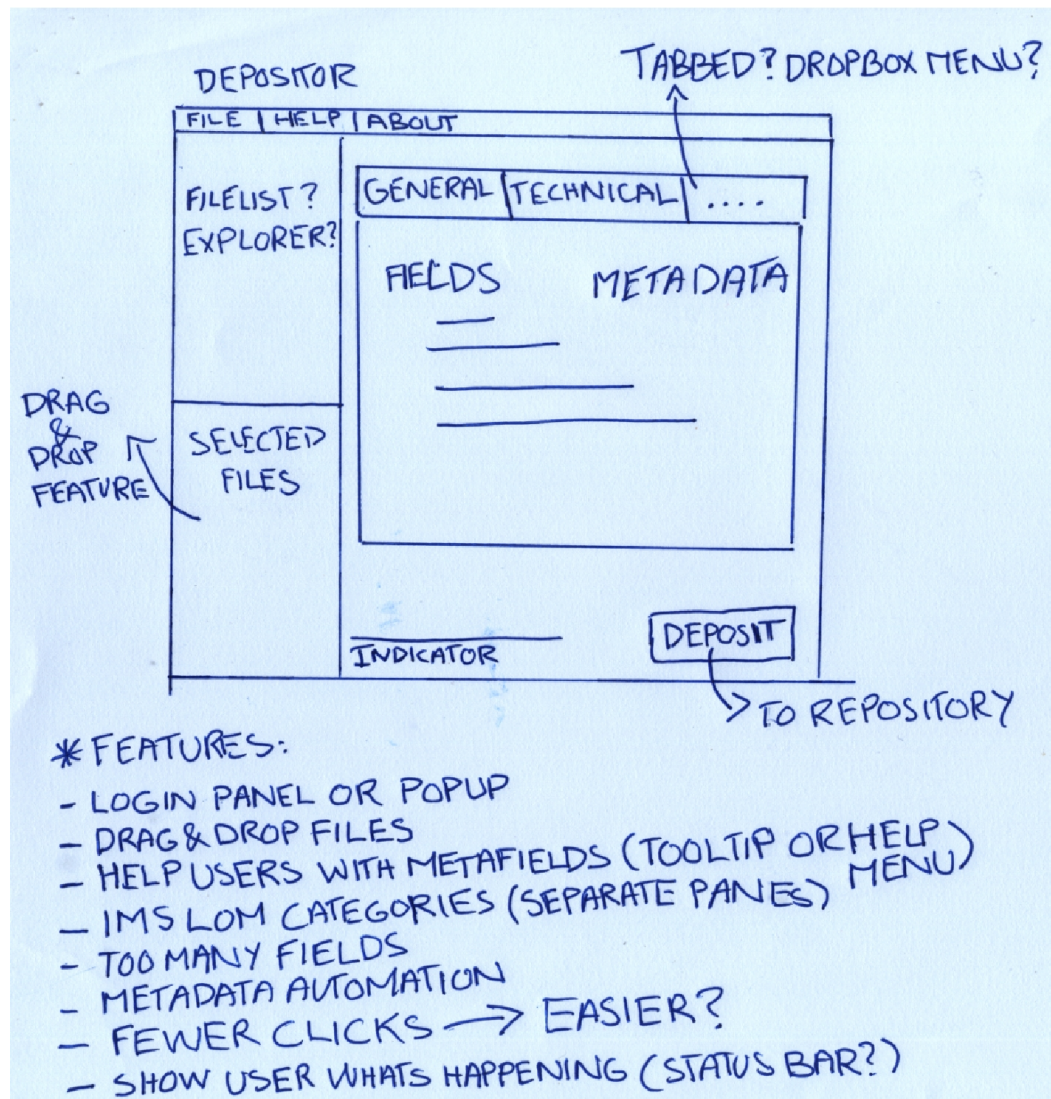 TABBED? DROPBOX MENU?
DEPOSITOR
FILE | HELP | ABOUT
GENERAL | TECHNICAL | ....
FILELIST?
EXPLORER?
FIELDS METADATA
DRAG
&
DROP
FEATURE
SELECTED
FILES
INDICATOR
DEPOSIT
TO REPOSITORY
* FEATURES:
- LOGIN PANEL OR POPUP
- DRAG & DROP FILES
- HELP USERS WITH METAFIELDS (TOOLTIP OR HELP
MENU)
- IMS LOM CATEGORIES (SEPARATE PANES)
- TOO MANY FIELDS
- METADATA AUTOMATION
- FEWER CLICKS → EASIER?
- SHOW USER WHATS HAPPENING (STATUS BAR?)